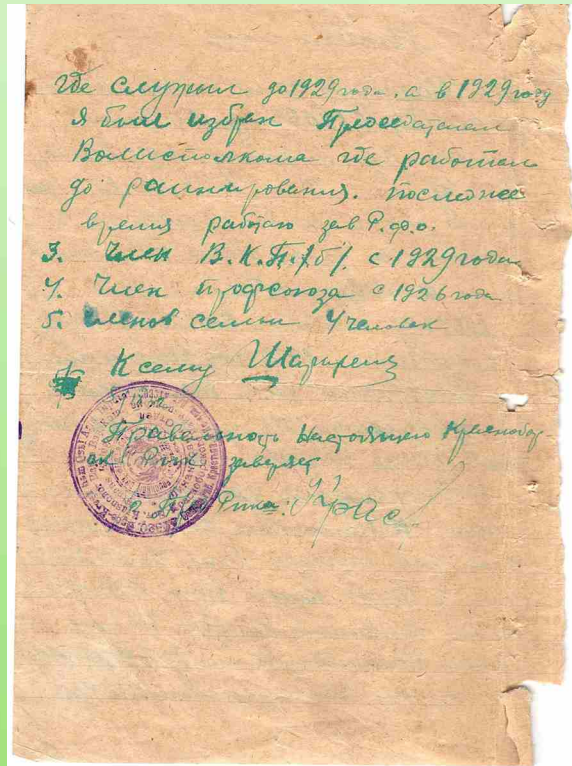 где служил до 1929 года. а в 1929 году
я был избран Председателем
Волисполкома где работал
до раионирования. последнее
время работаю зав Р.ф.о.
3. Член В.К.П./б/. с 1929 года
4. Член профсоюза с 1926 года
5. членов семьи 4 человек
К сему
Правельность Настоящего
Рик заверяет
Рика: